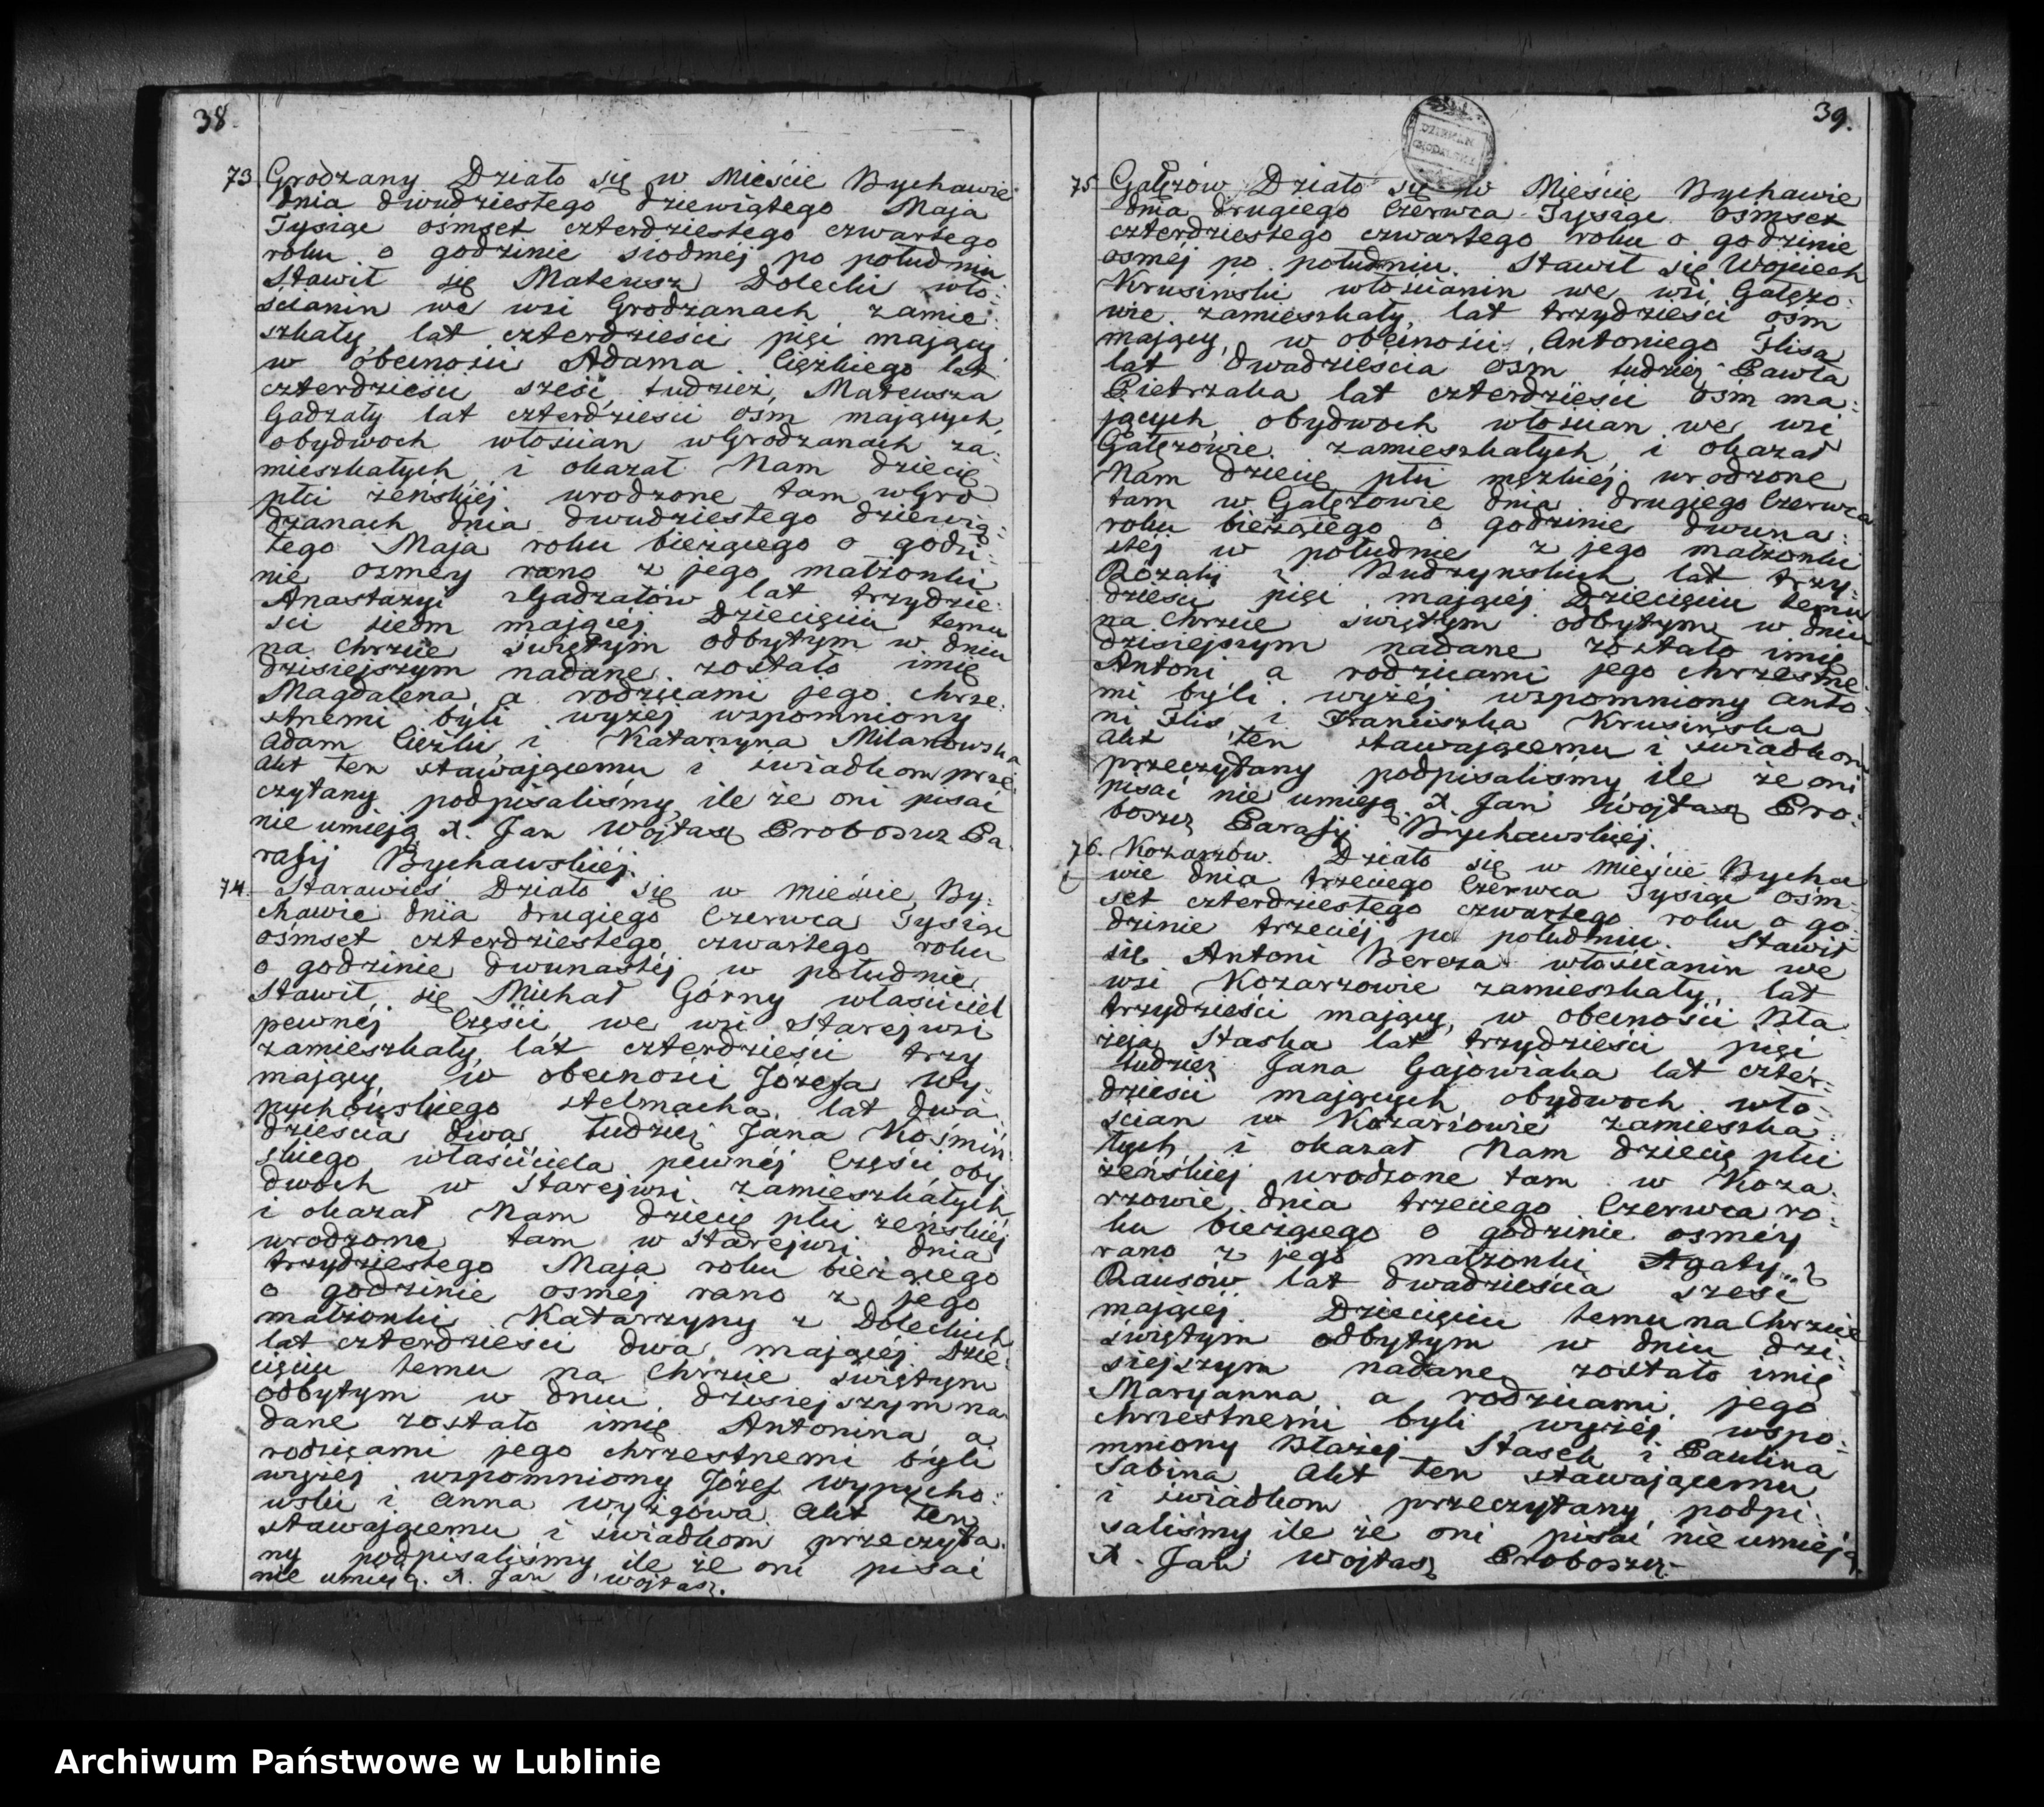 38.
73. Grodzany Działo się w Mieście Bychawie
dnia dwudziestego dziewiątego Maja
Tysiąc ośmset czterdziestego czwartego
roku o godzinie siodmej po południu
Stawił się Mateusz Dolecki wło-
ścianin we wsi Grodzanach zamie-
szkały, lat czterdzieści pięć mający
w obecności Adama Ciężkiego lat
czterdzieści sześć, tudzież, Mateusza
Gadzały lat czterdzieści ośm mających
obydwoch włościan w Grodzanach za-
mieszkałych, i okazał Nam dziecię
płci żeńskiej urodzone tam w Gro
dzanach dnia dwudziestego dziewią-
tego Maja roku bieżącego o godzi-
nie osmey rano z jego małżonki
Anastazyi z Gadzałów lat trzydzie-
ści siedm mającej Dziecięciu temu
na Chrzcie świętym odbytym w dniu
dzisiejszym nadane zostało imię
Magdalena a rodzicami jego chrze-
stnemi byli wyżej wspomniony
Adam Ciężki i Katarzyna Milanowska
Akt ten stawającemu i świadkom prze-
czytany podpisaliśmy ile że oni pisać
nie umieją X. Jan Wojtasz Proboszcz Pa-
rafij Bychawskiej.
74. Starawieś Działo się w mieście By-
chawie dnia drugiego Czerwca Tysiąc
ośmset czterdziestego czwartego roku
o godzinie dwunastej w południe
Stawił się Michał Górny właściciel
pewnej Części we wsi Starejwsi
zamieszkały, lat czterdzieści trzy
mający, w obecności Józefa Wy-
pychowskiego stelmacha, lat dwa
dzieścia dwa, tudzież Jana Kośmin-
skiego właściciela pewnej Części oby-
dwoch w Starejwsi zamieszkałych
i okazał Nam dziecię płci żeńskiej
urodzone tam w Starejwsi dnia
trzydziestego Maja roku bieżącego
o godzinie osmej rano z jego
małżonki Katarzyny z Doleckich
lat czterdzieści dwa mającej Dzie-
cięciu temu na Chrzcie świętym
odbytym w dniu dzisiejszym na
dane zostało imię Antonina a
rodzicami jego chrzestnemi byli
wyżej wspomniony Józef Wypycho-
wski i Anna Wyżgowa. Akt ten
stawającemu i świadkom przeczyta-
ny podpisaliśmy ile że oni pisać
nie umieją. X. Jan Wojtasz.
39.
75. Gałęzów Działo się w Mieście Bychawie
dnia drugiego Czerwca Tysiąc ośmset
czterdziestego czwartego roku o godzinie
osmej po południu. Stawił się Wojciech
Krusiński włościanin we wsi Gałęzo-
wie zamieszkały, lat trzydzieści ośm
mający, w obecności, Antoniego Flisa
lat dwadzieścia ośm tudzież Pawła
Pietrzaka lat czterdzieści ośm ma-
jących obydwoch włościan we wsi
Gałęzówie zamieszkałych, i okazał
Nam dziecię płci męzkiej urodzone
tam w Gałęzowie dnia drugiego Czerwca
roku bieżącego o godzinie dwuna-
stej w południe z jego małżonki
Rozalij z Budzynskich lat trzy-
dzieści pięć mającej Dziecięciu temu
na Chrzcie świętym odbytym w dniu
dzisiejszym nadane zostało imię
Antoni, a rodzicami jego chrzestne-
mi byli wyżej wspomniony Anto-
ni Flis i Franciszka Krusińska
Akt ten stawającemu i świadkom
przeczytany podpisaliśmy ile że oni
pisać nie umieją. X. Jan Wojtasz Pro-
boszcz Parafij Bychawskiej.
76. Kozarzów. Działo się w mieście Bycha
wie dnia trzeciego Czerwca Tysiąc ośm-
set czterdziestego czwartego roku o go-
dzinie trzeciej po południu. Stawił
się Antoni Bereza włościanin we
wsi Kozarzowie zamieszkały, lat
trzydzieści mający, w obecności Bła
żeja Staska lat trzydzieści pięć
tudzież Jana Gajowiaka lat czter-
dzieści mających obydwoch wło-
scian w Kozarzowie zamieszka-
łych, i okazał Nam dziecię płci
żeńskiej urodzone tam w Koza-
rzowie, dnia trzeciego Czerwca ro-
ku bieżącego o godzinie osméy
rano z jego małżonki Agaty z
Rausów lat dwadzieścia sześć
mającej. Dziecięciu temu na Chrzcie
świętym odbytym w dniu dzi-
siejszym nadane zostało imię
Maryanna a rodzicami jego
chrzestnemi byli wyżej wspo-
mniony Błażej Stasek i Paulina
Sabina Akt ten stawającemu
i świadkom przeczytany, podpi-
saliśmy ile że oni pisać nie umieją.
X. Jan Wojtasz Proboszcz.
Archiwum Państwowe w Lublinie